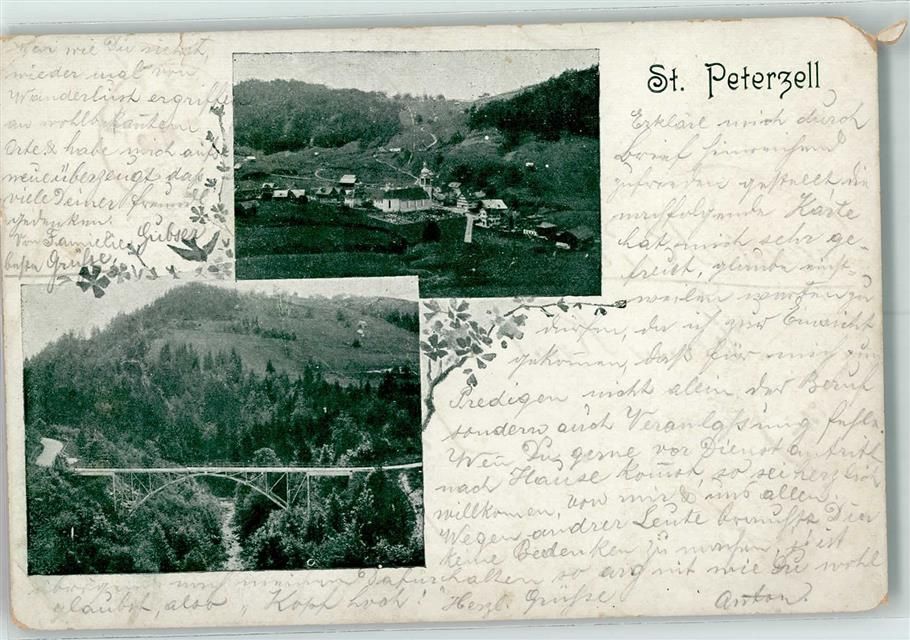 St. Peterzell
wie Du siehst,
wieder mal von
Wanderlust ergriffen
an wohlbekanntem
Orte & habe mich aufs
neue überzeugt daß
viele Deiner freundl.
gedenken.
Von Familie Gübser
beste Grüße,
Erkläre mich durch
Brief hinreichend
zufrieden gestellt, die
nachfolgende Karte
hat mich sehr ge-
freut, glaube einst-
weilen warten zu
dürfen, da ich zur Einsicht
gekommen, daß für mich zum
Predigen nicht allein der Beruf
sondern auch Veranlassung fehle.
Wenn Du gerne vor Dienstantritt
nach Hause kommst, so sei herzlich
willkommen, von mir & uns allen.
Wegen andrer Leute brauchst Du
keine Bedenken zu machen, es ist
meinem Dafürhalten so arg nit wie Du wohl
glaubst, also "Kopf hoch!" Herzl. Grüße Anton.